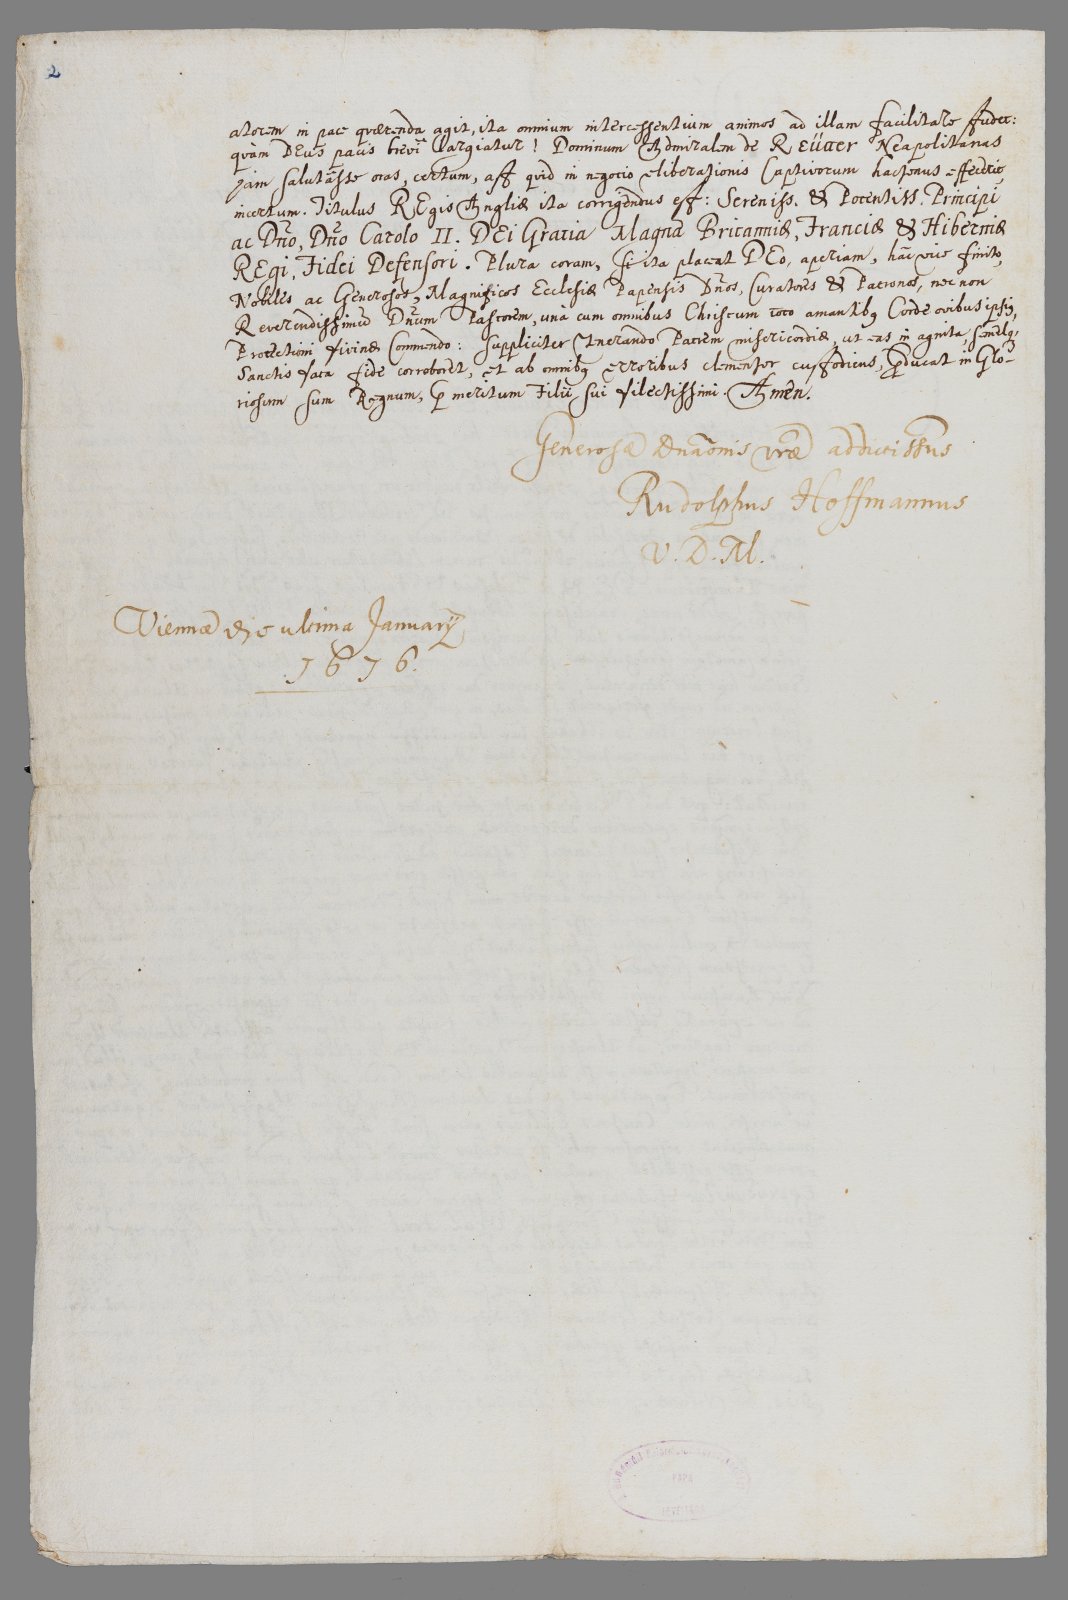 2
atorem in pace quærenda agit, ita omnium intercessentium animos ad illam facilitare studet:
quàm DEus pacis brevi largiatur! Dominum Admiralem de Reütter Neapolitanas
jam salutâsse oras, certum, ast quid in negocio eliberationis Captivorum hactenus effecerit,
incertum. Titulus REgis Angliæ ita corrigendus est: Sereniss. & Potentiss. Principi
ac Dño, Dño Carolo II. DEi Gratia Magnæ Britanniæ, Franciæ & Hiberniæ
REgi, Fidei Defensori. Plura coram, si ita placeat DEo, aperiam, hâc vice finito,
Nobiles ac Generosos, Magnificos Ecclesiæ Papensis Dños, Curatores & Patronos, nec non
Reverendissimũ Dñum Pastorem, una cum omnibus Christum toto amantibq Corde ovibus ipsis,
Protectioni divinæ Commendo: suppliciter venerando Patrem misericordiæ, ut eas in agnita, semelq;
Sanctis data fide corroboret, et ab omnibq erroribus clementer custodiens, perducat in Glo-
riosum suum Regnum, per meritum Filii sui dilectissimi. Amen.
Generosæ Dnaõnis vræ addictissimus
Rudolphus Hoffmannus
V. D. M.
Viennæ die ultima Januarij
1676.
PÁPA